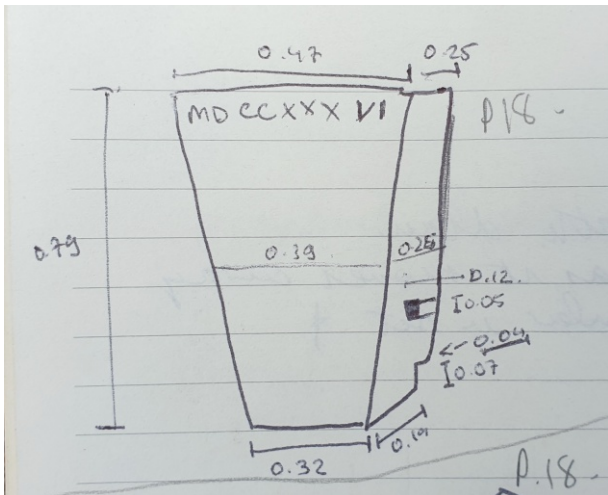 0.47 0.25
MDCCXXXVI P18-
0.79
0.39 0.25
0.12.
I0.05
0.04
I0.07
0.32
P.18-